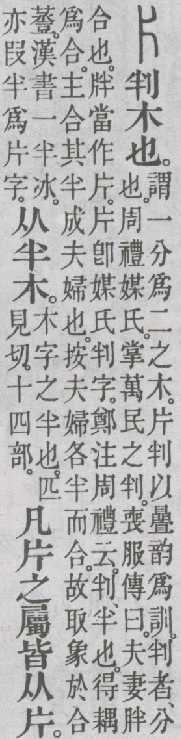 片判木也。謂一分爲二之木。片判以曡韵爲訓。判者、分
也。周禮媒氏。掌萬民之判。喪服傳曰。夫妻胖
合也。胖當作片。片卽媒氏判字。鄭注周禮云。判、半也。得耦
爲合。主合其半成夫婦也。按夫婦各半而合。故取象於合
漢書一半冰。
亦叚半爲片字。从半木。木字之半也。匹
見切。十四部。凡片之屬皆从片。